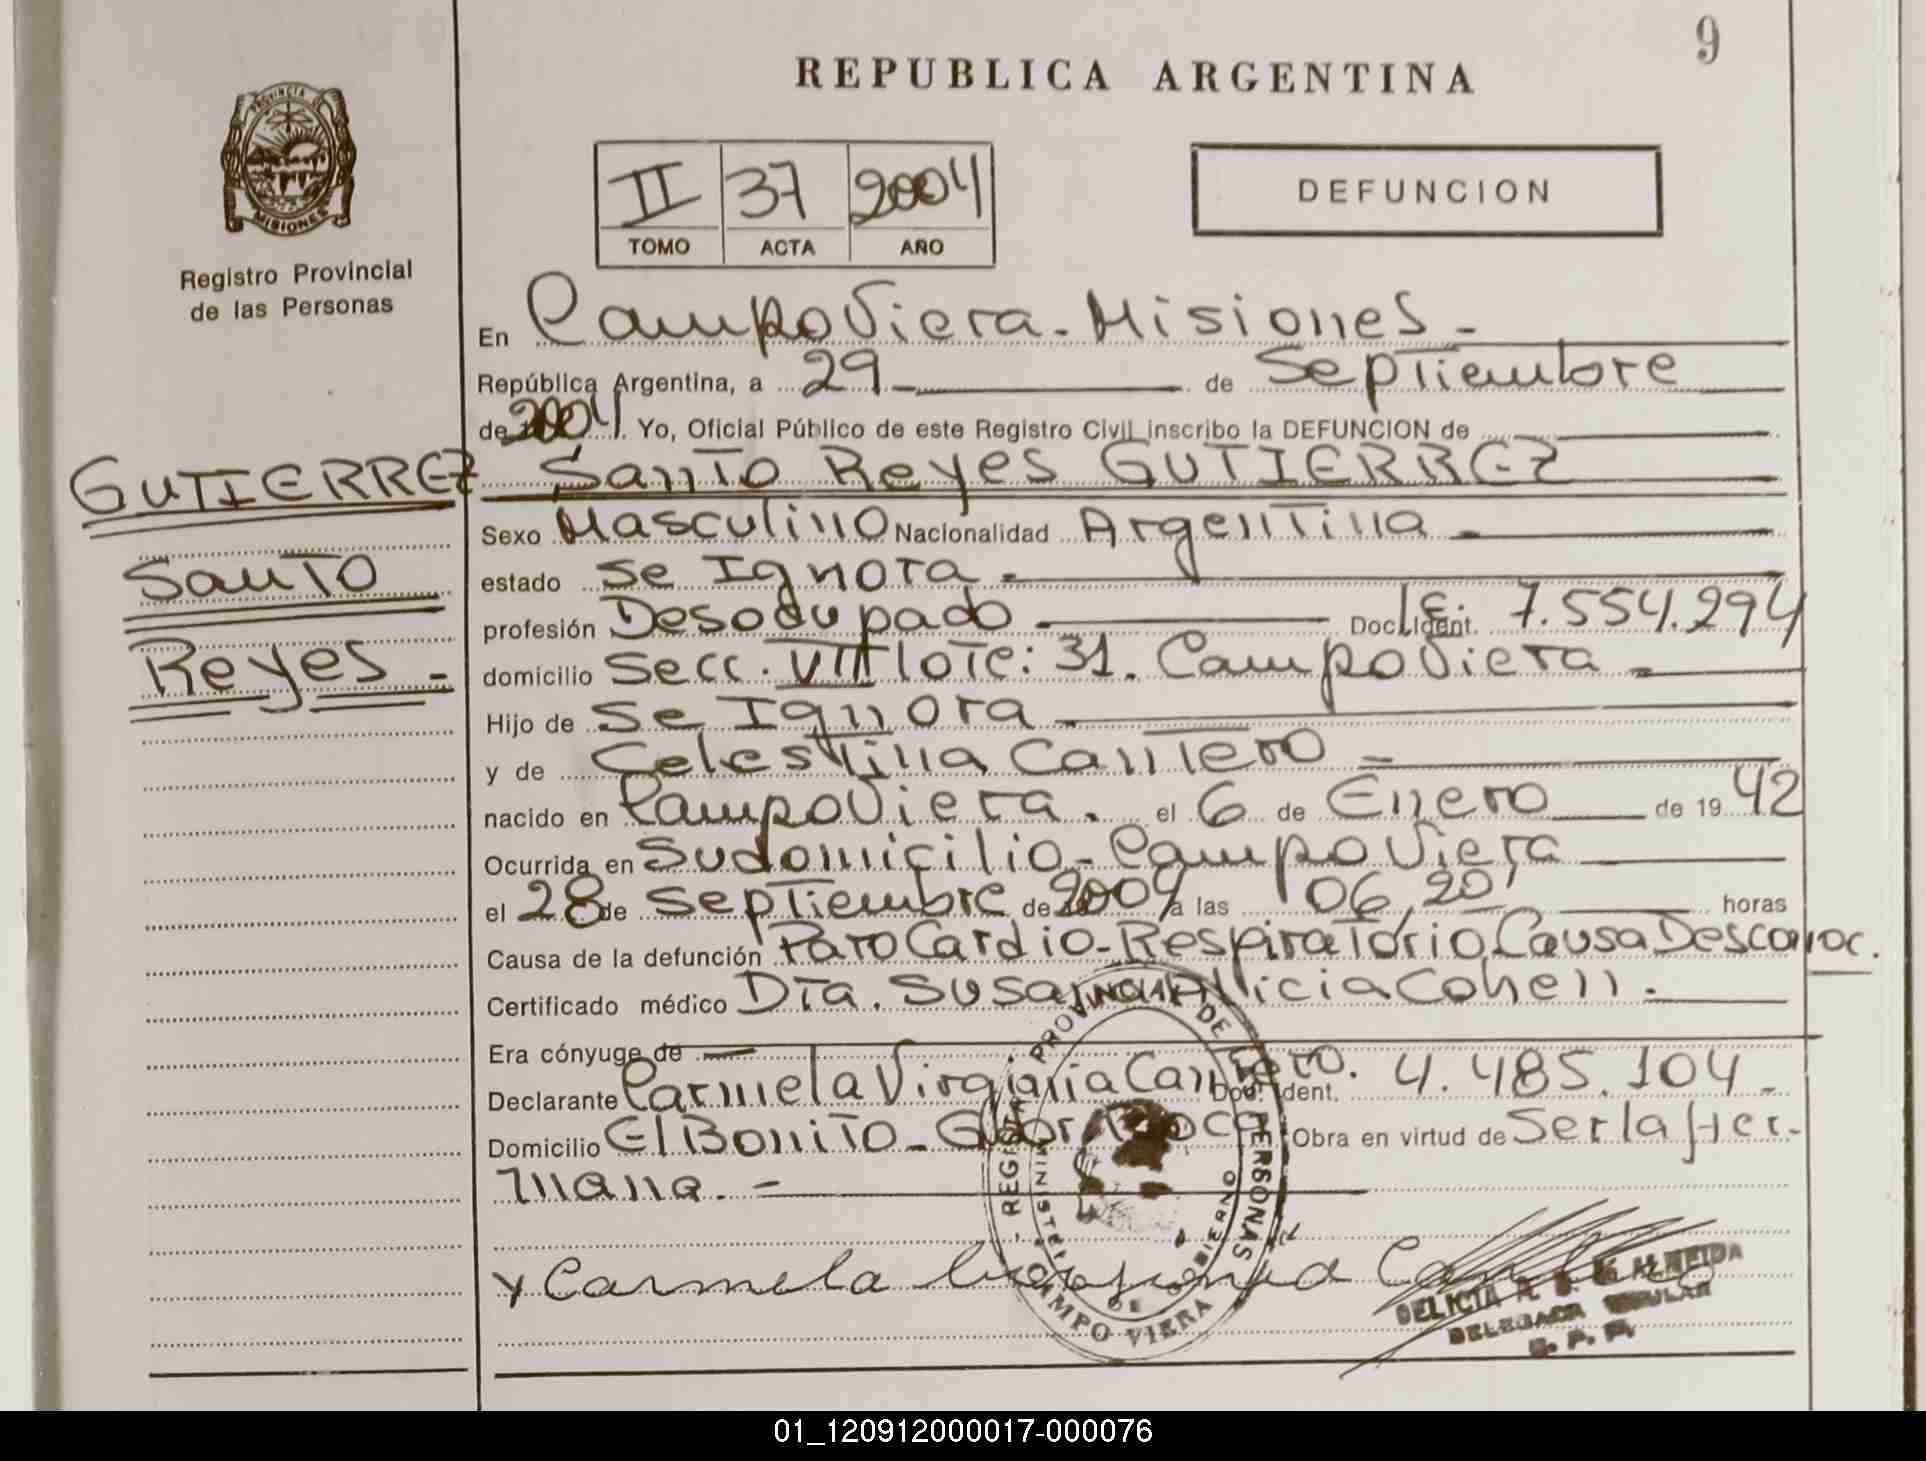 9
REPUBLICA ARGENTINA
PROVINCIA DE
MISIONES
Registro Provincial
de las Personas
II 37 2004
TOMO ACTA AÑO
DEFUNCION
En Campo Viera - Misiones -
República Argentina, a 29 - de Septiembre
de 2004 Yo, Oficial Público de este Registro Civil inscribo la DEFUNCION de
GUTIERREZ
Santo
Reyes -
Santo Reyes GUTIERREZ
Sexo Masculino Nacionalidad Argentina -
estado se Ignora -
profesión Desocupado Doc. Ident. L.E. 7.554.294
domicilio Secc. VIII Lote: 31. Campo Viera -
Hijo de se Ignora -
y de Celestina Cantero -
nacido en Campo Viera. el 6 de Enero de 1942
Ocurrida en Su domicilio - Campo Viera
el 28 de Septiembre de 2004 a las 06,20' horas
Causa de la defunción Paro Cardio-Respiratorio Causa Desconoc.
Certificado médico Dra. Susana Alicia Cohen.
Era cónyuge de —
Declarante Carmela Virginia Cantero. Doc. Ident. 4.485.104 -
Domicilio El Bonito - Gdor Roca Obra en virtud de Ser la Her-
mana. -
REGISTRO PROVINCIAL DE PERSONAS
MINISTERIO DE GOBIERNO
CAMPO VIERA
Carmela Virginia Cantero
DELICIA ALMEIDA
DELEGADA TITULAR
R. P. P.
01_120912000017-000076